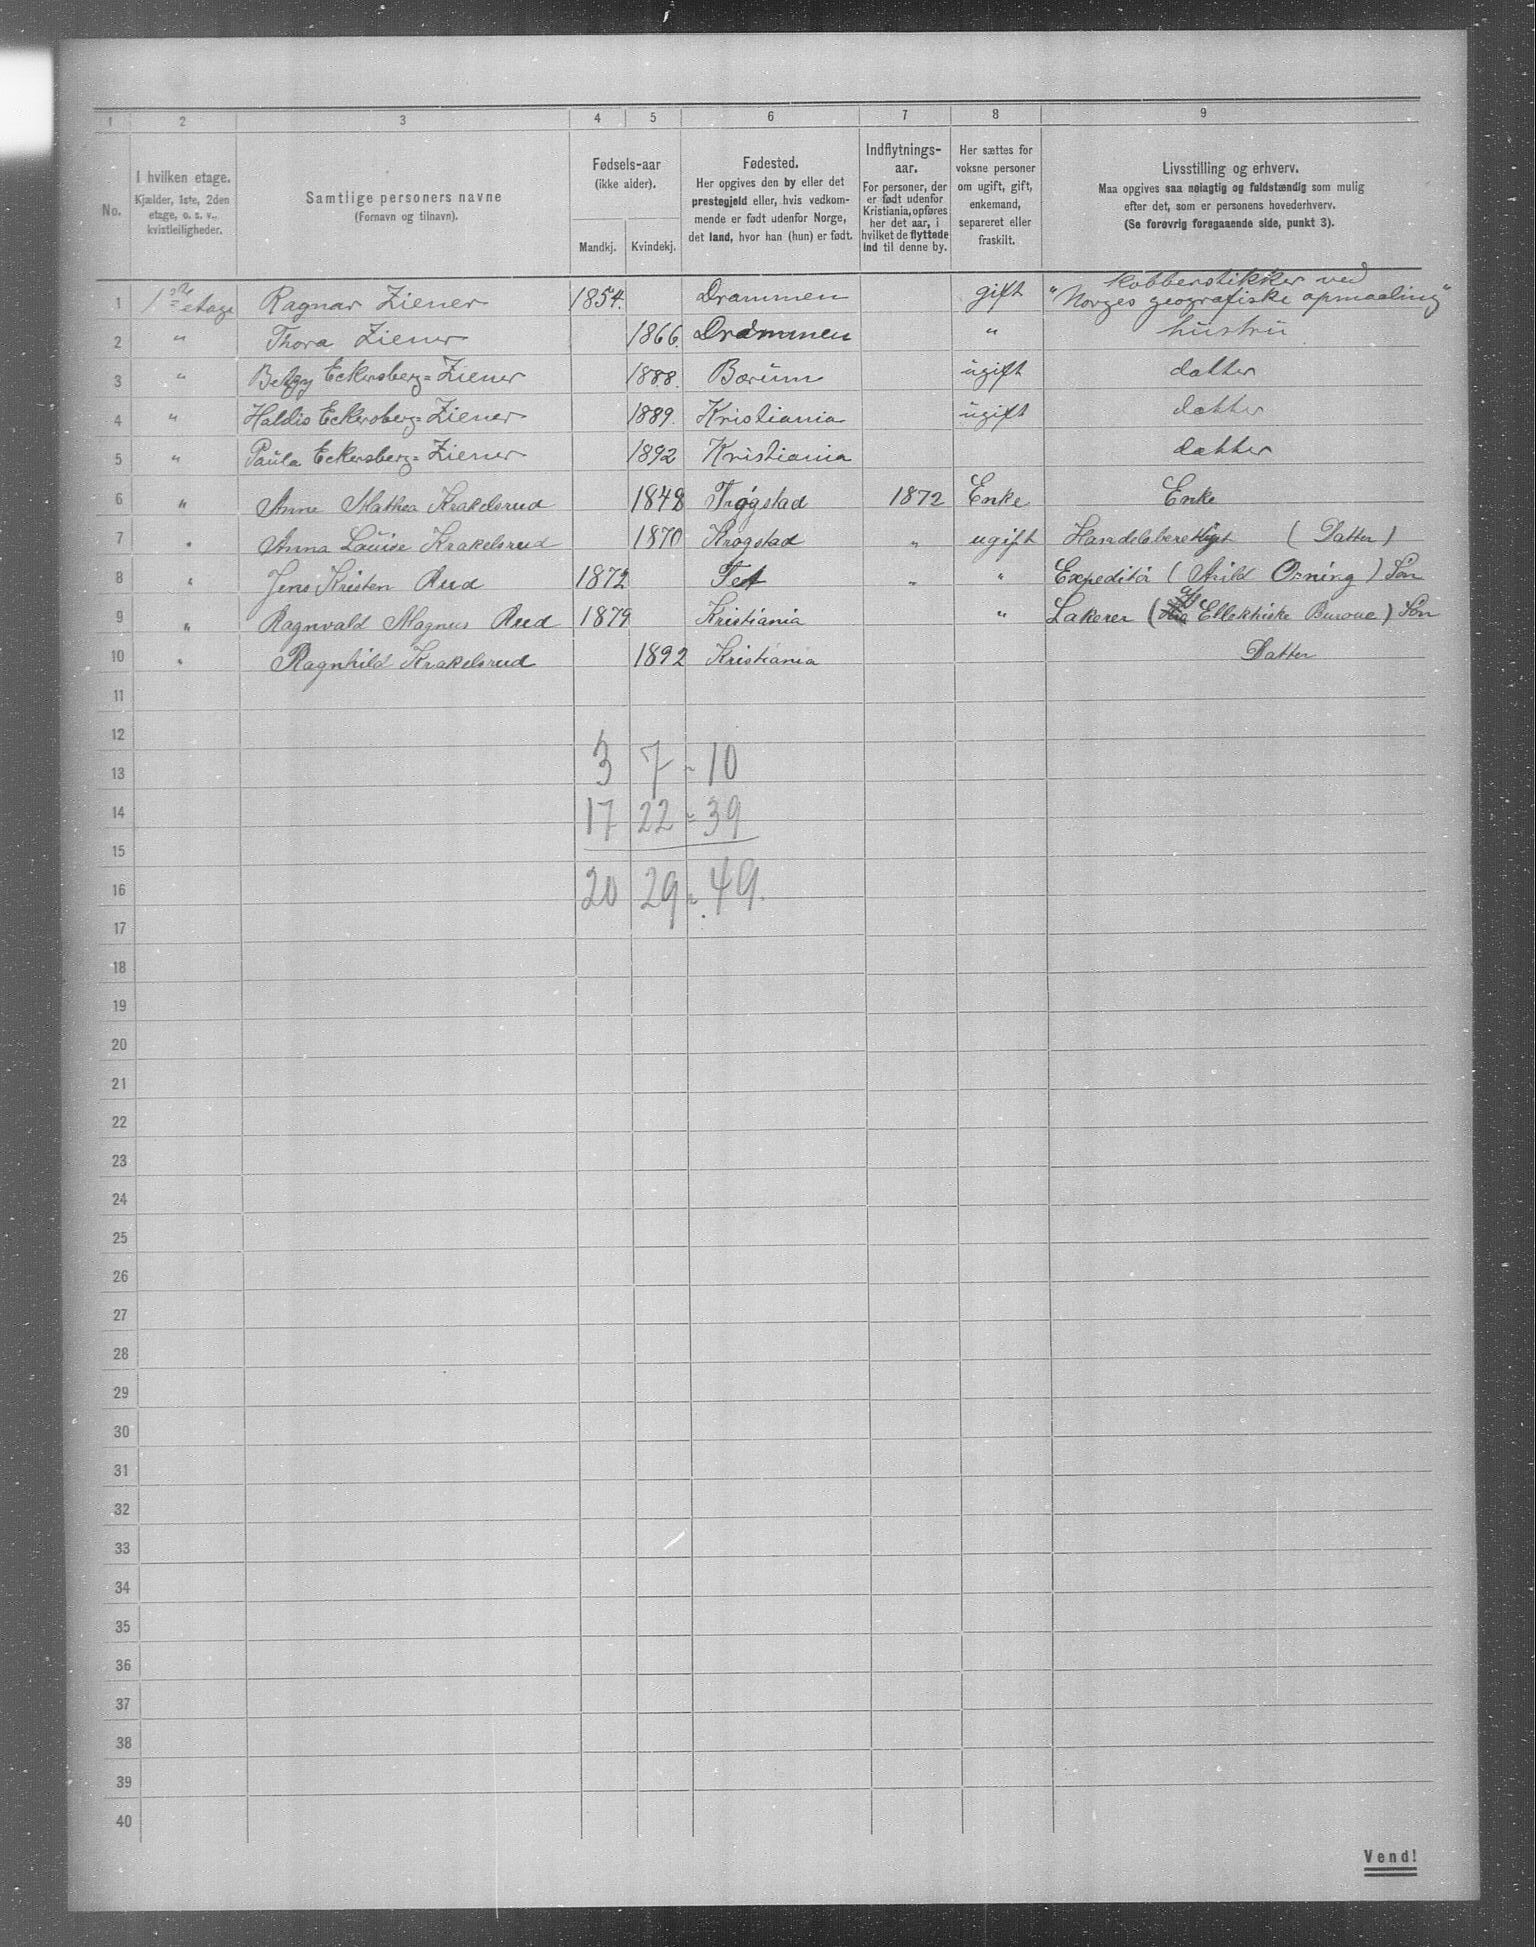 1 2 3 4 5 6 7 8 9
No.
I hvilken etage.
Kjælder, 1ste, 2den
etage, o. s. v.,
kvistleiligheder.
Samtlige personers navne
(Fornavn og tilnavn).
Fødsels-aar
(ikke alder).
Mandkj. Kvindekj.
Fødested.
Her opgives den by eller det
prestegjeld eller, hvis vedkom-
mende er født udenfor Norge,
det land, hvor han (hun) er født.
Indflytnings-
aar.
For personer, der
er født udenfor
Kristiania, opføres
her det aar, i
hvilket de flyttede
ind til denne by.
Her sættes for
voksne personer
om ugift, gift,
enkemand,
separeret eller
fraskilt.
Livsstilling og erhverv.
Maa opgives saa nøiagtig og fuldstændig som mulig
efter det, som er personens hovederhverv.
(Se forøvrig foregaaende side, punkt 3).
kobberstikker ved
1 etage Ragnar Ziener 1854. Drammen gift "Norges geografiske opmaaling"
2 " Thora Ziener 1866. Drammen " hustru
3 " Betzy Eckersberg=Ziener 1888. Bærum ugift datter
4 " Haldis Eckersberg=Ziener 1889. Kristiania ugift datter
5 " Paula Eckersberg=Ziener 1892 Kristiania datter
6 " Anne Mathea Krakelsrud 1848 Trøgstad 1872 Enke Enke
7 " Anna Louise Krakelsrud 1870 Krogstad " ugift Handelsberettiget (Datter)
8 " Jens Kristen Rud 1872 Fet " " Expeditør (Arild Orning) Søn
9 " Ragnvald Magnus Rud 1879 Kristiania " Lakerer (A/S Ellektriske Buroue) Søn
10 " Ragnhild Krakelsrud 1892 Kristiania Datter
11
12
13 3 7 = 10
14 17 22 = 39
15
16 20 29 = 49.
17
18
19
20
21
22
23
24
25
26
27
28
29
30
31
32
33
34
35
36
37
38
39
40
Vend!